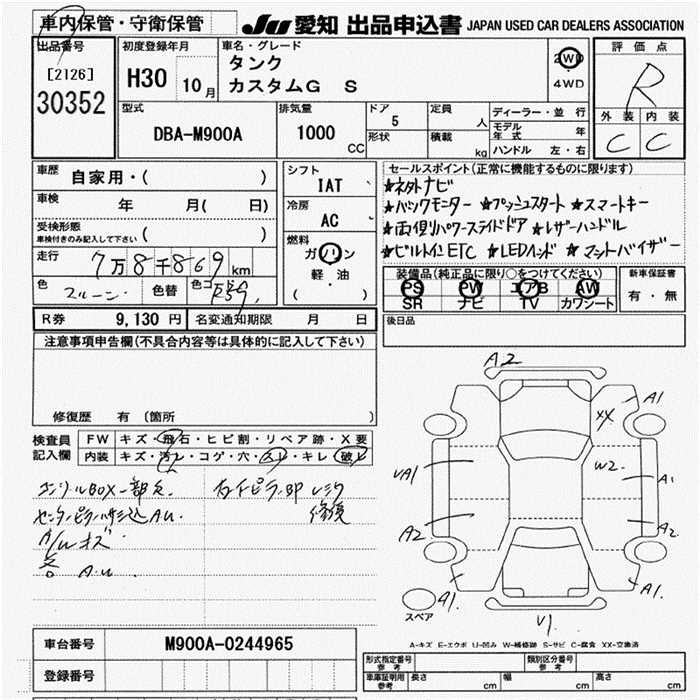 車内保管・守衛保管
JU 愛知 出品申込書 JAPAN USED CAR DEALERS ASSOCIATION
出品番号
[2126]
30352
初度登録年月
H30 10月
車名・グレード
タンク
カスタムG S
2WD
4WD
評価点
R
外装 内装
C C
型式
DBA-M900A
排気量
1000 CC
ドア 5
形状
定員 人
積載 kg
ディーラー・並行
モデル年式 年式
ハンドル 左・右
車歴 自家用・( )
車検 年 月( 日)
受検形態
車検付きのみ記入して下さい ( )
走行 7万8千869km
色 色替 色コード
シフト
IAT
冷房
AC
燃料
ガソリン
軽・油
( )
セールスポイント(正常に機能するものに限ります)
★ネオトナビ
★パノラマモニター ★プッシュスタート ★スマートキー
★両側パワースライドドア ★レザーハンドル
★ビルトインETC ★LEDヘッド ★マットバイザー
装備品(純正品に限り○をつけてください)
PS PW エアB AW
SR ナビ TV カワシート
新車保証書
有・無
後日品
R券 9,130円 名変通知期限 月 日
注意事項申告欄(不具合内容等は具体的に記入して下さい)
修復歴 有 〔箇所 〕
検査員記入欄
FW キズ・飛石・ヒビ割・リペア跡・X要
内装 キズ・汚レ・コゲ・穴・スレ・キレ・破レ
A2
A1
XX
W2
UA1
A1
A2
A2
A1.
A1.
V1
スペア
A-キズ E-エクボ U-凹み W-補修跡 S-サビ C-腐食 XX-交換済
車台番号 M900A-0244965
登録番号
形式指定番号 参考
類別区分番号 参考
車庫証明用 参考
長さ cm 幅 cm 高さ cm